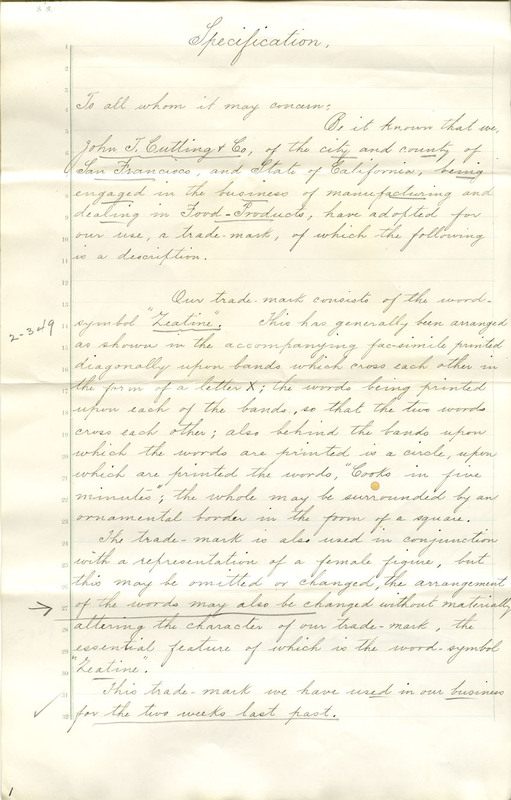 Specification.
1
2
3
4
5
6
7
8
9
10
11
12
13
14
15
16
17
18
19
20
21
22
23
24
25
26
27
28
29
30
31
32
To all whom it may concern:
Be it known that we,
John T. Cutting & Co, of the city and county of
San Francisco, and State of California, being
engaged in the business of manufacturing and
dealing in Food-Products, have adopted for
our use, a trade-mark, of which the following
is a description.
Our trade-mark consists of the word-
symbol "Zeatine". This has generally been arranged
as shown in the accompanying fac-simile printed
diagonally upon bands which cross each other in
the form of a letter X; the words being printed
upon each of the bands, so that the two words
cross each other; also behind the bands upon
which the words are printed is a circle, upon
which are printed the words, "Cooks in five
minutes"; the whole may be surrounded by an
ornamental border in the form of a square.
The trade-mark is also used in conjunction
with a representation of a female figure, but
this may be omitted or changed, the arrangement
of the words may also be changed without materially
altering the character of our trade-mark, the
essential feature of which is the word-symbol
"Zeatine".
This trade-mark we have used in our business
for the two weeks last past.
1